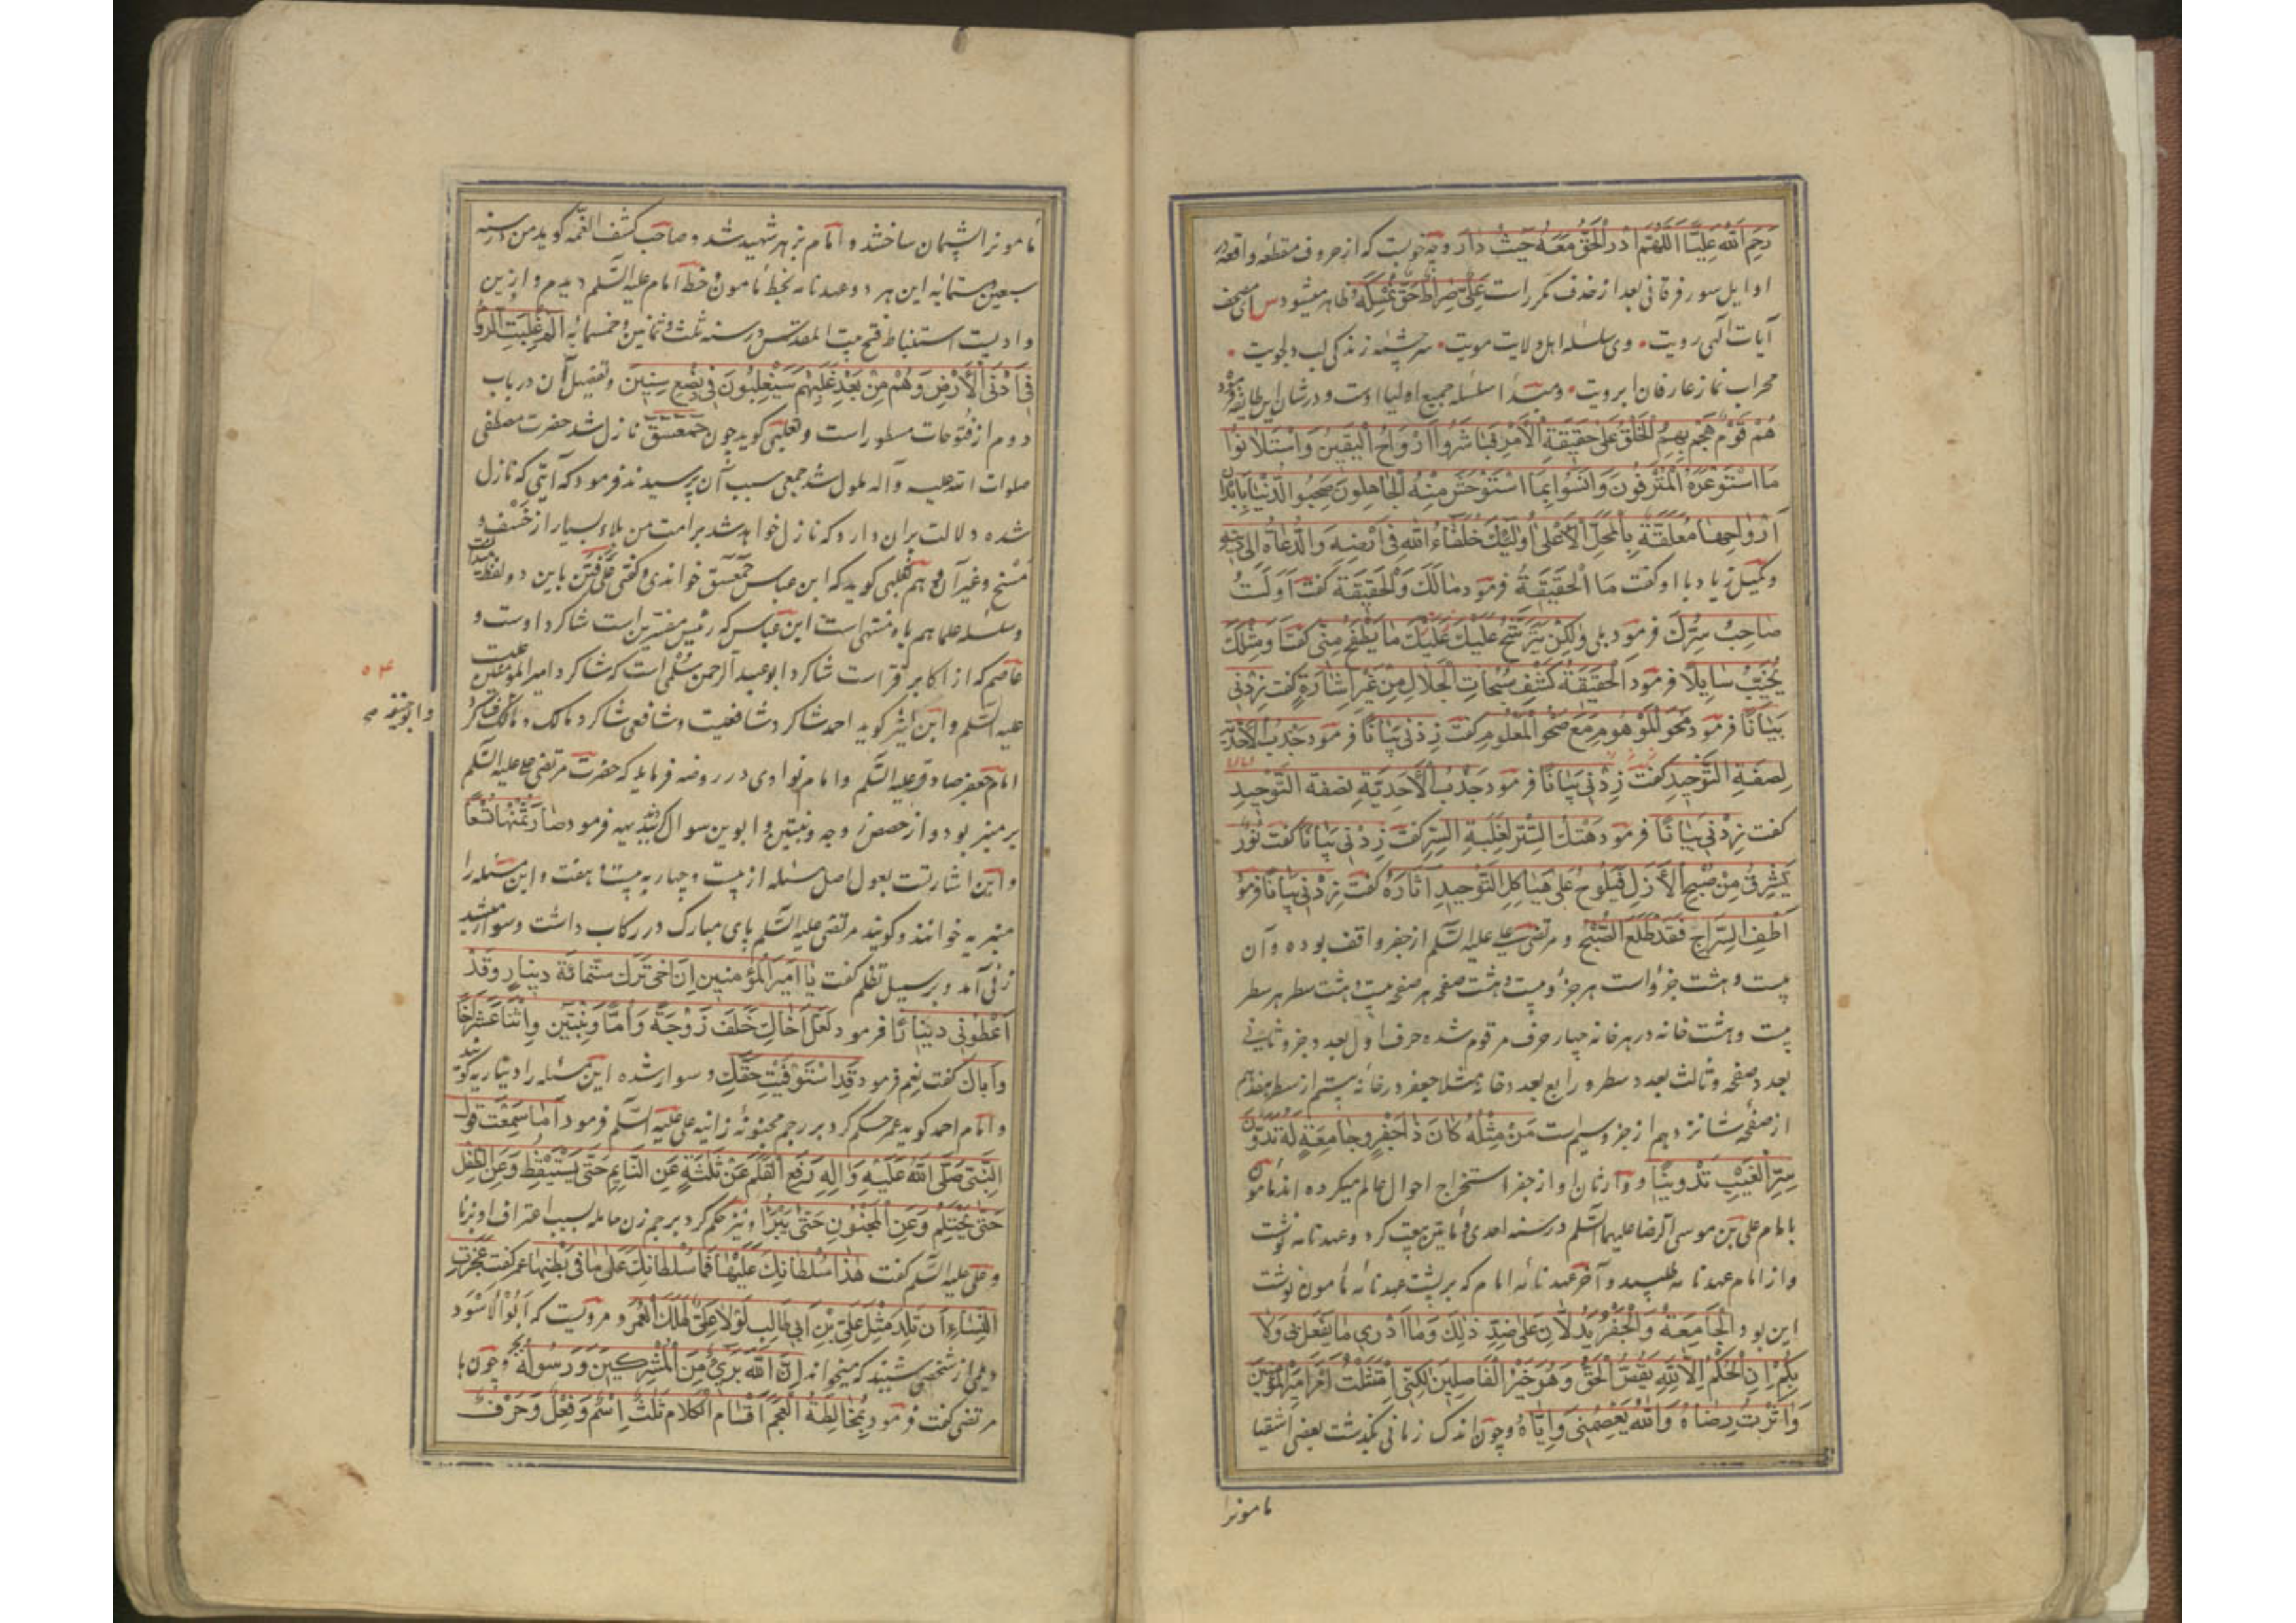 رَحِمَ اللّٰهُ عَلِیًّا اَللّٰهُمَّ اَدِرِ الْحَقَّ مَعَهُ حَیْثُ دَارَ و چه خوبست که از حروف مقطعه واقعه در
اوایل سور فرقانی بعد از حذف مکرر است عَلِیٌّ صِرَاطُ حَقٍّ نُمْسِکُهُ ظاهر میشود س ای مصحف
آیات الهی رویت • وی سلسله اهل ولایت مویت • سرچشمه زندگی لب دلجویت •
محراب نماز عارفان ابرویت • و مبتدأ سلسله جمیع اولیا اوست و در شان این طایفه فرموده
هُمْ قَوْمٌ هَجَمَ بِهِمُ الْخَلْقُ عَلٰی حَقِیْقَةِ الْاَمْرِ فَبَاشَرُوا اَرْوَاحَ الْیَقِیْنِ وَاسْتَلَانُوا
مَا اسْتَوْعَرَهُ الْمُتْرَفُونَ وَاَنِسُوا بِمَا اسْتَوْحَشَ مِنْهُ الْجَاهِلُونَ صَحِبُوا الدُّنْیَا بِاَبْدَانٍ
اَرْوَاحُهَا مُعَلَّقَةٌ بِالْمَحَلِّ الْاَعْلٰی اُولٰئِکَ خُلَفَاءُ اللّٰهِ فِی اَرْضِهِ وَالدُّعَاةُ اِلٰی دِیْنِهِ
و کمیل زیاد با او گفت مَا الْحَقِیْقَةُ فرمود مَالَکَ وَالْحَقِیْقَةَ گفت اَوَلَسْتُ
صَاحِبَ سِرِّکَ فرمود بلی وَلٰکِنْ یَتَرَشَّحُ عَلَیْکَ مَا یَطْفَحُ مِنِّی گفت اَوَمِثْلُکَ
یُخَیِّبُ سَایِلًا فرمود اَلْحَقِیْقَةُ کَشْفُ سُبُحَاتِ الْجَلَالِ مِنْ غَیْرِ اِشَارَةٍ گفت زِدْنِی
بَیَانًا فرمود مَحْوُ الْمَوْهُومِ مَعَ صَحْوِ الْمَعْلُومِ گفت زِدْنِی بَیَانًا فرمود جَذْبُ الْاَحَدِیَّةِ
لِصِفَةِ التَّوْحِیدِ گفت زِدْنِی بَیَانًا فرمود جَذْبُ الْاَحَدِیَّةِ لِصِفَةِ التَّوْحِیدِ
گفت زِدْنِی بَیَانًا فرمود هَتْکُ السِّتْرِ لِغَلَبَةِ السِّرِّ گفت زِدْنِی بَیَانًا گفت نُورٌ
یُشْرِقُ مِنْ صُبْحِ الْاَزَلِ فَیَلُوحُ عَلٰی هَیَاکِلِ التَّوْحِیدِ آثَارُهُ گفت زِدْنِی بَیَانًا فرمود
اَطْفِ السِّرَاجَ فَقَدْ طَلَعَ الصُّبْحُ و مرتضی علی علیه السّلم از جفر واقف بوده و آن
بیست و هشت جزو است هر جزو بیست و هشت صفحه هر صفحه بیست و هشت سطر هر سطر
بیست و هشت خانه در هر خانه چهار حرف مرقوم شده حرف اول بعدد جزو و ثانی
بعدد صفحه و ثالث بعدد سطر و رابع بعدد خانه مثلا جعفر در خانه بیستم از سطر هفدهم
از صفحه شانزدهم از جزو سیم است مَنْ مِثْلُهُ کَانَ ذَا جَفْرٍ وَجَامِعَةٍ لَهُ تَدَوَّنَ
سِرُّ الْغَیْبِ تَدْوِینًا و وارثان او از جفر استخراج احوال عالم میکرده اند مأمون
با امام علی بن موسی الرضا علیهما السّلم در سنه احدی و مأتین بیعت کرد و عهدنامه نوشت
و از امام عهدنامه طلبید و آخر عهدنامه امام که بر پشت عهدنامه مأمون نوشت
این بود اَلْجَامِعَةُ وَالْجَفْرُ یَدُلَّانِ عَلٰی ضِدِّ ذٰلِکَ وَمَا اَدْرِی مَا یُفْعَلُ بِی وَلَا
بِکُمْ اِنِ الْحُکْمُ اِلَّا لِلّٰهِ یَقُصُّ الْحَقَّ وَهُوَ خَیْرُ الْفَاصِلِینَ لٰکِنِّی امْتَثَلْتُ اَمْرَ اَمِیرِ الْمُؤْمِنِینَ
وَاٰثَرْتُ رِضَاهُ وَاللّٰهُ یَعْصِمُنِی وَاِیَّاهُ و چون اندک زمانی بگذشت بعضی اشقیا
مامونرا
مامونرا پشیمان ساختند و امام بزهر شهید شد و صاحب کشف الغمّه گوید من در سنه
سبعین و ستمائه این هر دو عهدنامه بخط مأمون و خط امام علیه السّلم دیدم و ازین
وادیست استنباط فتح بیت المقدس در سنه ثلث و ثمانین و خمسمائه الٓمٓ غُلِبَتِ الرُّومُ
فِی اَدْنَی الْاَرْضِ وَهُمْ مِنْ بَعْدِ غَلَبِهِمْ سَیَغْلِبُونَ فِی بِضْعِ سِنِینَ و تفصیل آن در باب
دوم از فتوحات مسطور است و ثعلبی گوید چون حمعسق نازل شد حضرت مصطفی
صلوات الله علیه و آله ملول شد جمعی سبب آن پرسیدند فرمود که آیتی که نازل
شده دلالت بران دارد که نازل خواهد شد بر امت من بلاء بسیار از خسف و
مسخ و غیر آن و هم ثعلبی گوید که ابن عباس حمعسق خواندی و گفتی علی فتن باین دو لفظ میدانست
و سلسله علما هم باو منتهی است ابن عباس که رئیس مفسرین است شاگرد اوست و
عاصم که از اکابر قراست شاگرد ابو عبد الرحمن سلمی است که شاگرد امیر المؤمنین علیست
علیه السّلم و ابن اثیر گوید احمد شاگرد شافعیست و شافعی شاگرد مالک و مالک شاگرد
۵۴
و ابو حنیفه
امام جعفر صادق علیه السّلم و امام نواوی در روضه فرماید که حضرت مرتضی علی علیه السّلم
بر منبر بود و از حصص زوجه و بنتین و ابوین سوال کردند بدیهه فرمود صَارَ ثُمْنُهَا تُسْعًا
و این اشارتست بعول اصل مسئله از بیست و چهار به بیست و هفت و این مسئله را
منبریه خوانند و گویند مرتضی علیه السّلم پای مبارک در رکاب داشت و سوار میشد
زنی آمد و بر سبیل تظلم گفت یَا اَمِیرَ الْمُؤْمِنِینَ اِنَّ اَخِی تَرَکَ سِتَّمِائَةَ دِینَارٍ وَقَدْ
اَعْطَوْنِی دِینَارًا فرمود لَعَلَّ اَخَاکِ خَلَّفَ زَوْجَةً وَاُمًّا وَبِنْتَیْنِ وَاثْنَا عَشَرَ اَخًا
وَاِیَّاکِ گفت نعم فرمود قَدِ اسْتَوْفَیْتِ حَقَّکِ و سوار شده این مسئله را دیناریه گویند
و امام احمد گوید عمر حکم کرد بر رجم مجنونه زانیه علی علیه السّلم فرمود اَمَا سَمِعْتَ قَوْلَ
النَّبِیِّ صَلَّی اللّٰهُ عَلَیْهِ وَاٰلِهِ رُفِعَ الْقَلَمُ عَنْ ثَلٰثَةٍ عَنِ النَّایِمِ حَتّٰی یَسْتَیْقِظَ وَعَنِ الطِّفْلِ
حَتّٰی یَحْتَلِمَ وَعَنِ الْمَجْنُونِ حَتّٰی یَبْرَأَ و نیز حکم کرد برجم زن حامله بسبب اعتراف او بزنا
و علی علیه السّلم گفت هٰذَا سُلْطَانُکَ عَلَیْهَا فَمَا سُلْطَانُکَ عَلٰی مَا فِی بَطْنِهَا عمر گفت عَجَزَتِ
النِّسَاءُ اَنْ تَلِدَ مِثْلَ عَلِیِّ بْنِ اَبِی طَالِبٍ لَوْلَا عَلِیٌّ لَهَلَکَ الْعُمَرُ و مرویست که ابو الاسود
دیلی از شخصی شنید که میخواند اِنَّ اللّٰهَ بَرِیءٌ مِنَ الْمُشْرِکِینَ وَرَسُولِهِ و چون با
مرتضی گفت فرمود بِمُخَالَطَةِ الْعَجَمِ اَقْسَامُ الْکَلَامِ ثَلٰثٌ اِسْمٌ وَفِعْلٌ وَحَرْفٌ